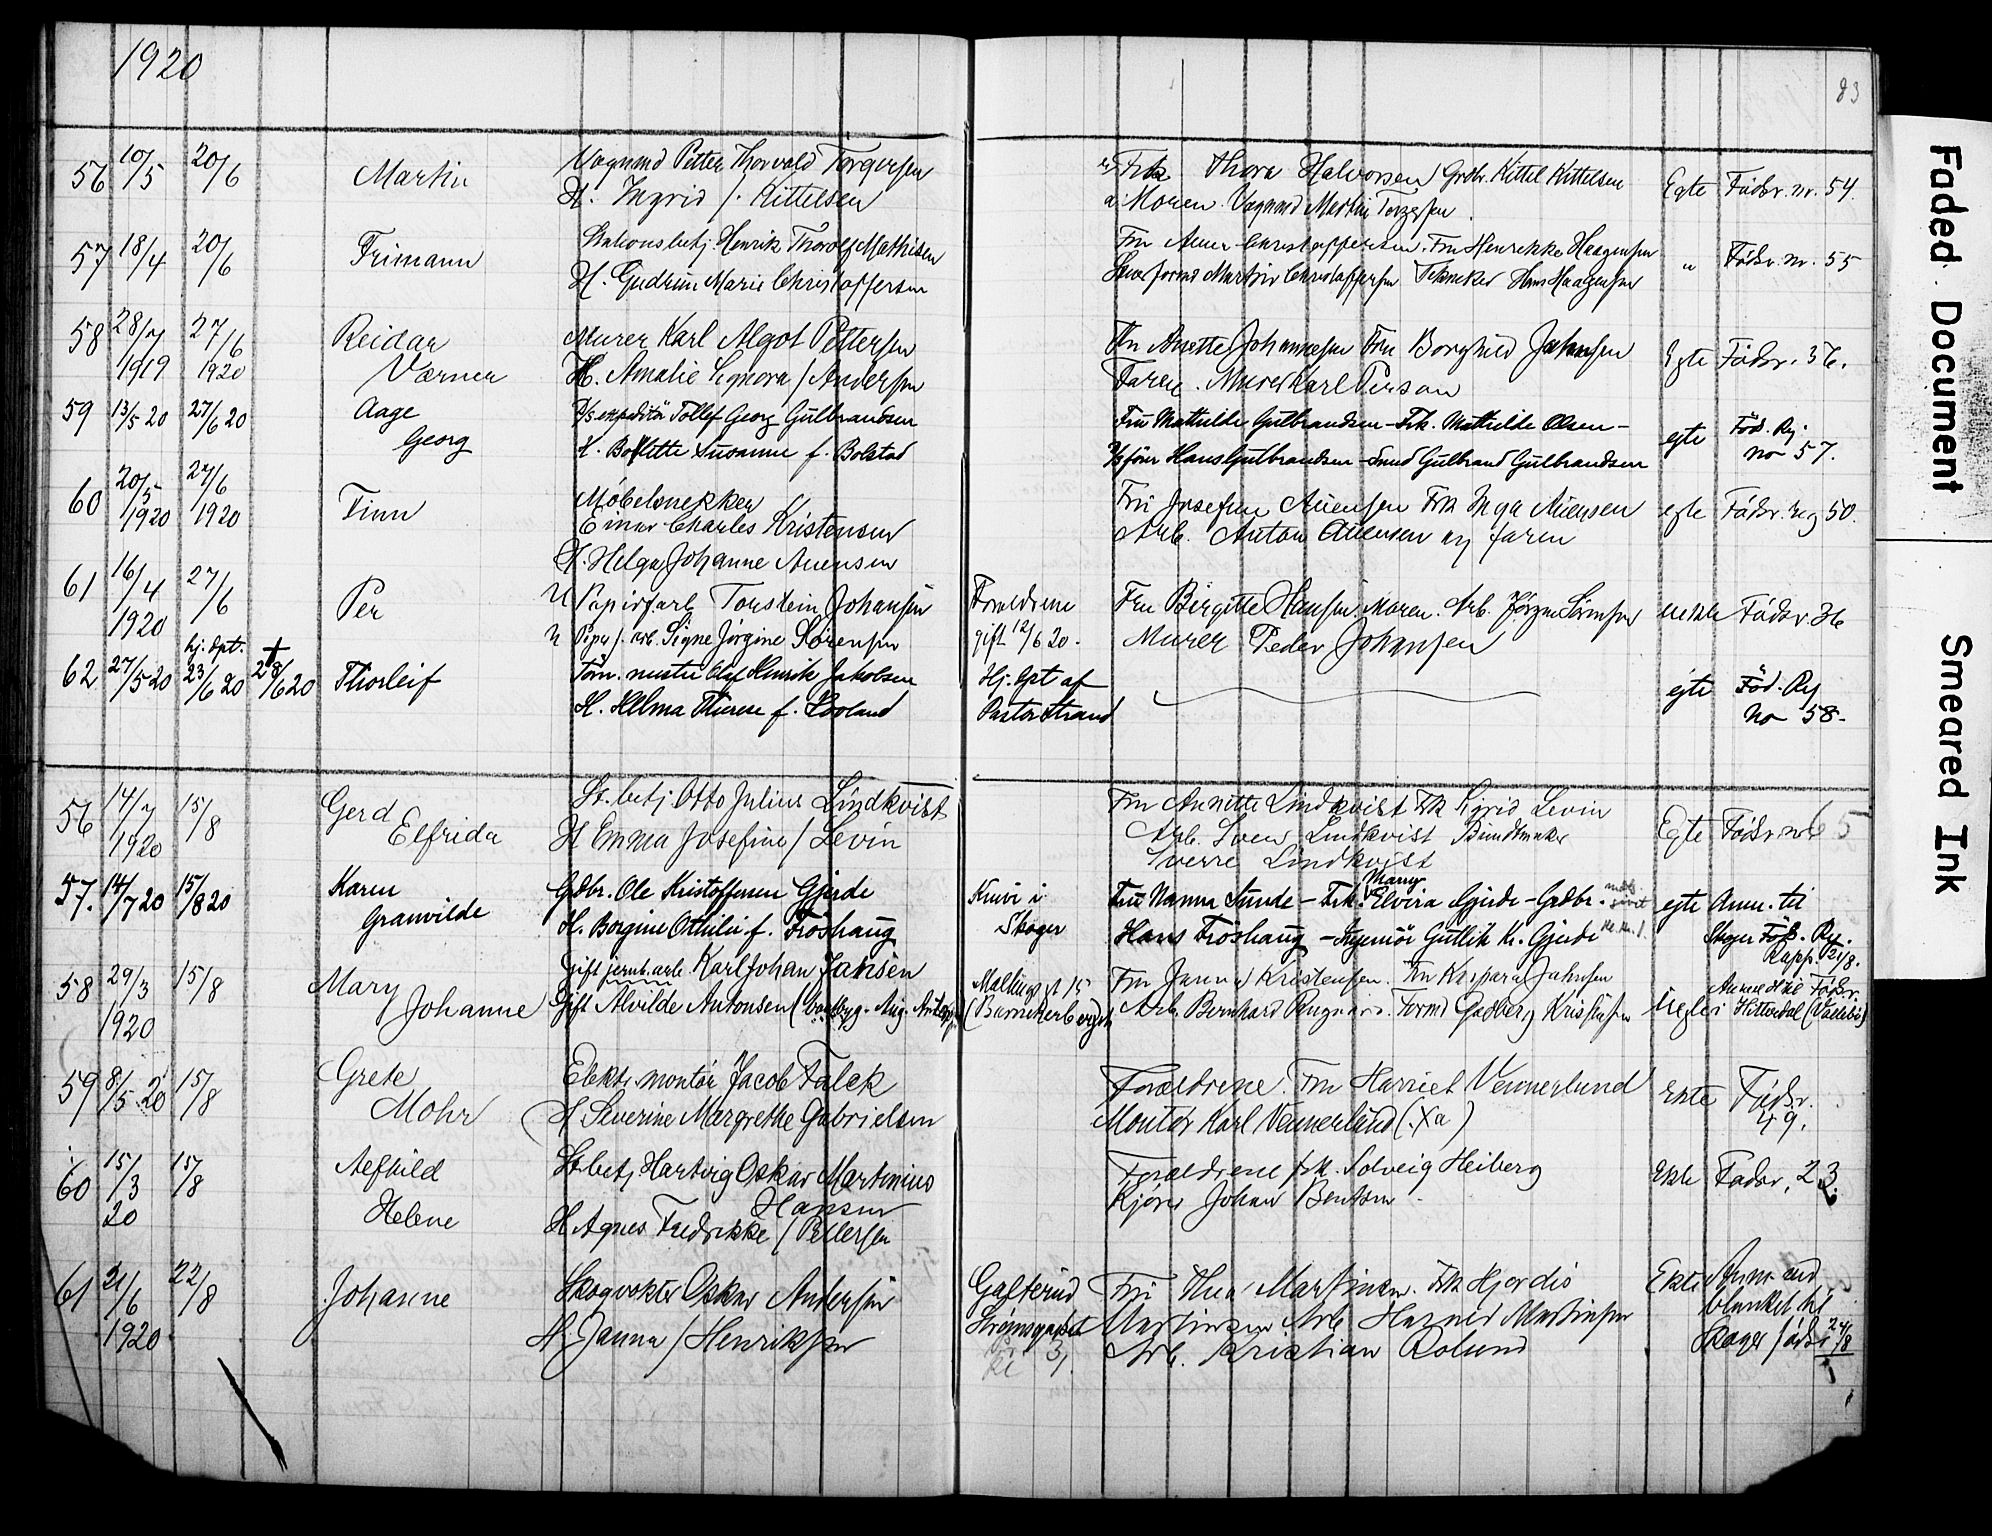 1920
83
Faded Document
Smeared Ink
56 10/5 20/6 Martin Vognmd Petter Thorvald Torgersen
H. Ingrid f. Kittelsen
Thora Halvorsen Grdbr. Kittel Kittelsen
Moren. Vognmd Martin Torgersen.
Egte Födsr. nr. 54.
57 18/4 20/6 Frimann Stationsbetj. Henrik Thorolf Mathisen
H. Gudrun Marie Christoffersen
Fru Anna Christoffersen. Fru Henrikke Haagensen
Martin Christoffersen Tekniker Hans Haagensen
" Födsr. nr. 55
58 28/7 1919 27/6 1920 Reidar
Værner
Murer Karl Algot Pettersen
H. Amalie Signora f. Andersen
Fru Anette Johannesen Fru Borghild Johnsen
Faren. Murer Karl Person
Egte Födsr. 36.
59 13/5 20 27/6 20 Aage
Georg
D/s expeditör Tollef Georg Gulbrandsen
H. Bollette Susanne f. Bolstad
Fru Mathilde Gulbrandsen – Frk. Mathilde Olsen –
Hans Gulbrandsen – Smed Gulbrand Gulbrandsen
egte Föd. Reg.
no 57.
60 20/5 1920 27/6 1920 Finn
Möbelsnekker
Einar Charles Kristensen
H. Helga Johanne Auensen
Fru Josefine Auensen Frk Inga Auensen
Arb. Anton Auensen og faren
egte Födsr. reg 50.
61 16/4 1920 27/6 Per
U Papirfarb Torstein Johansen
U Pige f. arb. Signe Jörgine Sörensen
Forældrene
gift 12/6 20.
Fru Birgitte Hansen. Moren. Arb. Jörgen Sörensen
Murer Peder Johansen
uekte Födsr. 36
62 27/5 20 hj. dpt. 23/6 20 + 28/6 20 Thorleif
Törn. mester Olaf Henrik Jakobsen
H. Helma Therese f. Hovland
Hj. dpt af
Pastor Strand
egte Föd. Reg
No 58-
56 14/7 1920 15/8 Gerd
Elfrida
St. betj Otto Julius Lindkvist
H Emma Josefine f Levin
Fru Annette Lindkvist Frk Sigrid Levin
Arb. Sven Lindkvist Bundtmaker
Sverre Lindkvist
Egte Födsr. nr 65
57. 14/7 20 15/8 20 Karen
Granvilde
Grdbr. Ole Kristoffersen Gjerde
H. Borgine Othilie f. Fröshaug
Knive i
Skoger
Fru Nanna Sunde – Frk. Marny Elvira Gjerde – Grdbr.
Hans Fröshaug – Ingeniör Gutlik Kr. Gjerde
egte Anm. til
Skoger Föds. Reg.
Rapp. 21/8.
58 29/3 1920 15/8 Mary
Johanne
Gift jernb. arb. Karl Johan Jansen
Gift Alvilde Antonsen
Mallings gt 15
Fru Janna Kristensen. Fru Kaspara Johnsen
Arb. Bernhard Ragnar. Formd Gadberg Kristensen
Uegte Anmeldt til Födsr.
i Hitterdal
59 8/5 20 15/8 Grete
Mohr
Elektr. montör Jacob Falck
H Severine Margrethe Gabrielsen
Forældrene. Fru Harriet Vennerlund
Montör Karl Vennerlund
ekte Födsr.
49.
60 15/3 20 15/8 Aefhild
Helene
St. betj Hartvig Oskar Martinius
Hansen
H. Agnes Fredrikke f Pettersen
Forældrene frk. Solveig Heiberg
Kjörer Johan Bentsen.
Ekte Födsr. 23.
61 21/6 1920 22/8 Johanne
Skogvokter Oskar Andersen
H. Janna f Henriksen
Galterud
Strömsgodset
31.
Fru Thea Martinsen. Frk Hjordis
Martinsen Arb. Harald Martinsen
Arb. Kristian Rolund
Ekte Anm. ad
blanket til
Skoger födsr 24/8